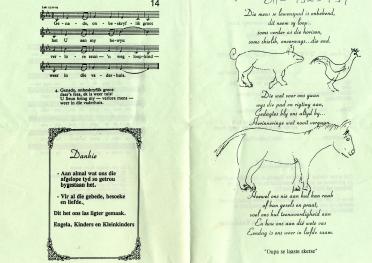 14
Ge - na - de, on - be - skryf - lik groot
het U aan my be-wys:
ver - lo - re seun - 'n weg - loop-kind
weer in die va-ders-huis.
4. Genade, onbeskryflik groot
daar's fees, ek is weer tuis!
U Seun bring my — verlore mens —
weer in die vaderhuis.
Dankie
- Aan almal wat ons die
afgelope tyd so getrou
bygestaan het.
- Vir al die gebede, besoeke
en liefde.
Dit het ons las ligter gemaak.
Engela, Kinders en Kleinkinders
Die mens se lewenspad is onbekend,
dit neem sy loop...
soms verder as die horison,
soms skielik, onverwags...die end.
Die wat voor ons gaan
wys die pad en rigting aan,
Gedagtes bly ons altyd by...
Herinnerings wat nooit vergaan
Hoewel ons nie aan hul kan raak
of hoor gesels en praat,
voel ons hul teenwoordigheid aan
En hou ons aan die wete vas
Eendag is ons weer in liefde saam.
"Oupa se laaste sketse"